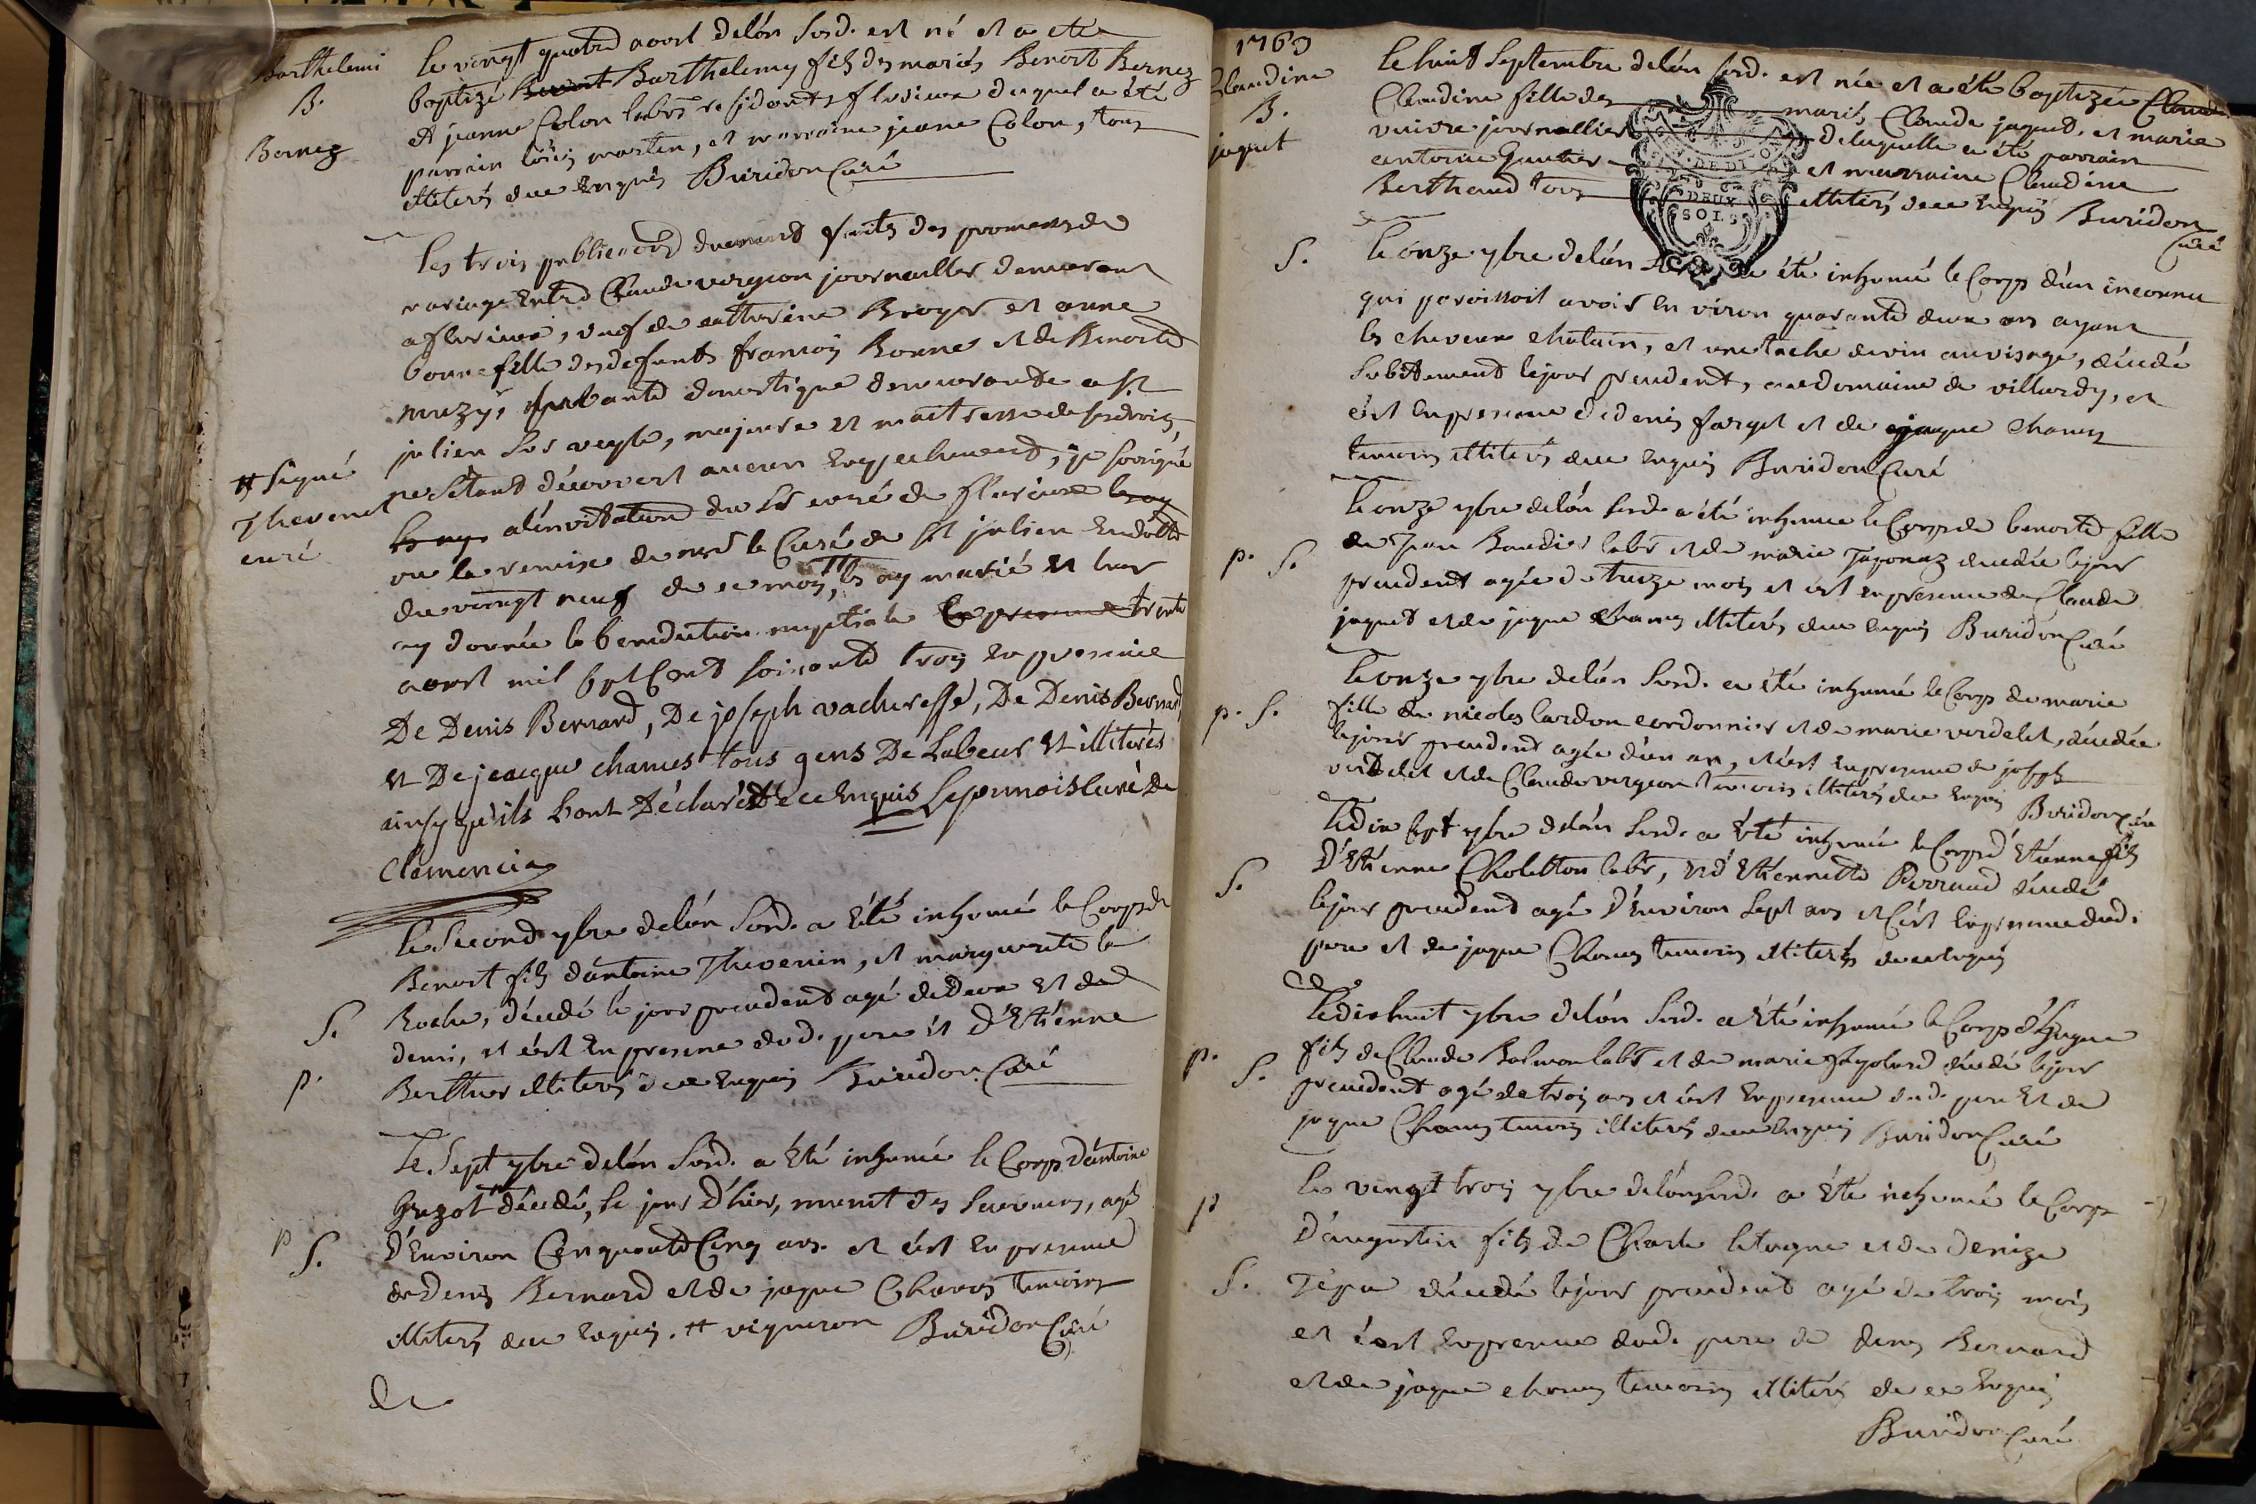 Barthelemi
B.
Bernez
le vingt quatre aoust de lán susd. est né et a eté
baptizé Benoit Barthelemy fils des mariés Benoit Bernez
et jeanne Colon labrs residants a flurieux duquel a été
parrain loüis marten, et marraine jeane Colon, tous
illiterés de ce enquis Buridon Curé
les trois publications duement faites des promesses de
mariage entre Claude vergeon journallier demeurant
a flurieux, veuf de catherine Broyer et anne
bonne fille des defunts francois Bonne et de Benoite
muzy, servante domestique demeurante a St
julien sur veyle, majeure et maitresse de ses droits,
ne s'etant découvert aucun empechement, je soussigné
a lénvitation du Sr curé de flurieux
ou la remise de mr le Curé de St julien en datte
du vingt neuf de ce mois, les ay marié et leur
ay donnée la benediction nuptiale en presence trente
aoust mil sept Cent soixante trois en presence
De Denis Bernard, De joseph vacheresse, De Denis Bernard
et De jeacque chanus tous gens De Labeur et illiterés
ainsy qu'ils hont Déclaré De ce Enquis Seponnois Curé De
Clemencia
# signé
Thevenet
curé
S.
p.
le Second 7bre de lán Susd. a été inhumé le Corps de
Benoit fils dántoine Thevenin, et marguerite la
Roche, décedé le jour precedent agé de Deux et de
demi, et cést en presence dud. pere et D'Etienne
Berthier illiterés de ce enquis Buridon Curé
p
S.
Le Sept 7bre de lán Susd. a été inhumé le Corps Dántoine
Guzot # décedé, le jour D'hier, munit des Sacremens, agé
D'Environ Cinquante Cinq ans. et cést en presence
de Denis Bernard et de jaque Chanus temoins
illiterés de ce enquis. # vigneron Buridon Curé
1763
Claudine
B.
jaquet
le huit Septembre de lán susd. est née et a été baptizée Claude
Claudine fille des mariés Claude jaquet, et marie
vuivre journallier de laquelle a été parrain
antoine Gautier et marraine Claudine
Berthaud tous illiterés de ce enquis Buridon
Curé
GEN. DE DIJON
DEUX
SOLS
S.
le ónze 7bre de lán Susd. a été inhumé le Corps d'un inconnu
qui paroissoit avoir en viron quarante deux ans ayant
les cheveux chatain, et une tache de vin au visage, décedé
subitement le jour precedent, au domaine de villardy, et
cést en presence de denis farget et de jaque Chanus
temoins illiterés de ce enquis Buridon Curé
p. S.
le onze 7bre de lán Susd. a été inhumé le Corps de benoite fille
de Jean Baudier labr et de marie Jayonaz decedée le jour
precedent agée de treize mois et cést en presence de Claude
jaquet et de jaque Chanus illiterés de ce enquis Buridon Curé
p. S.
le onze 7bre de lán Susd. a été inhumé le Corps de marie
fille de nicolas lardon cordonnier et de marie verdelet, décedée
le jour precedent agée d'un an, et cést en presence de joseph
verdelet et de Claude vergeon temoins illiterés de ce enquis Buridon Curé
S.
le dix sept 7bre de lán Susd. a été inhumé le Corps d'Etienne fils
D'Etienne Choletton labr, et d'Etiennette Perraud décedé
le jour precedent agé D'Environ Sept ans et Cést en presence dud.
pere et de jaque Chanus temoins illiterés de ce enquis
p. S.
le dix huit 7bre de lán Susd. a été inhumé le Corps d'Hugue
fils de Claude Balmon labr et de marie décedé le jour
precedent agé de trois ans et cést En presence dud. pere et de
jaque Chanus temoins illiterés de ce enquis Buridon Curé
p
S.
le vingt trois 7bre de lán Susd. a été inhumé le Corps
D'augustin fils de Charle et de Denize
décedé le jour precedent agé de trois mois
et cést En presence dud. pere de denis Bernard
et de jaque chanus temoins illiterés de ce enquis
Buridon Curé